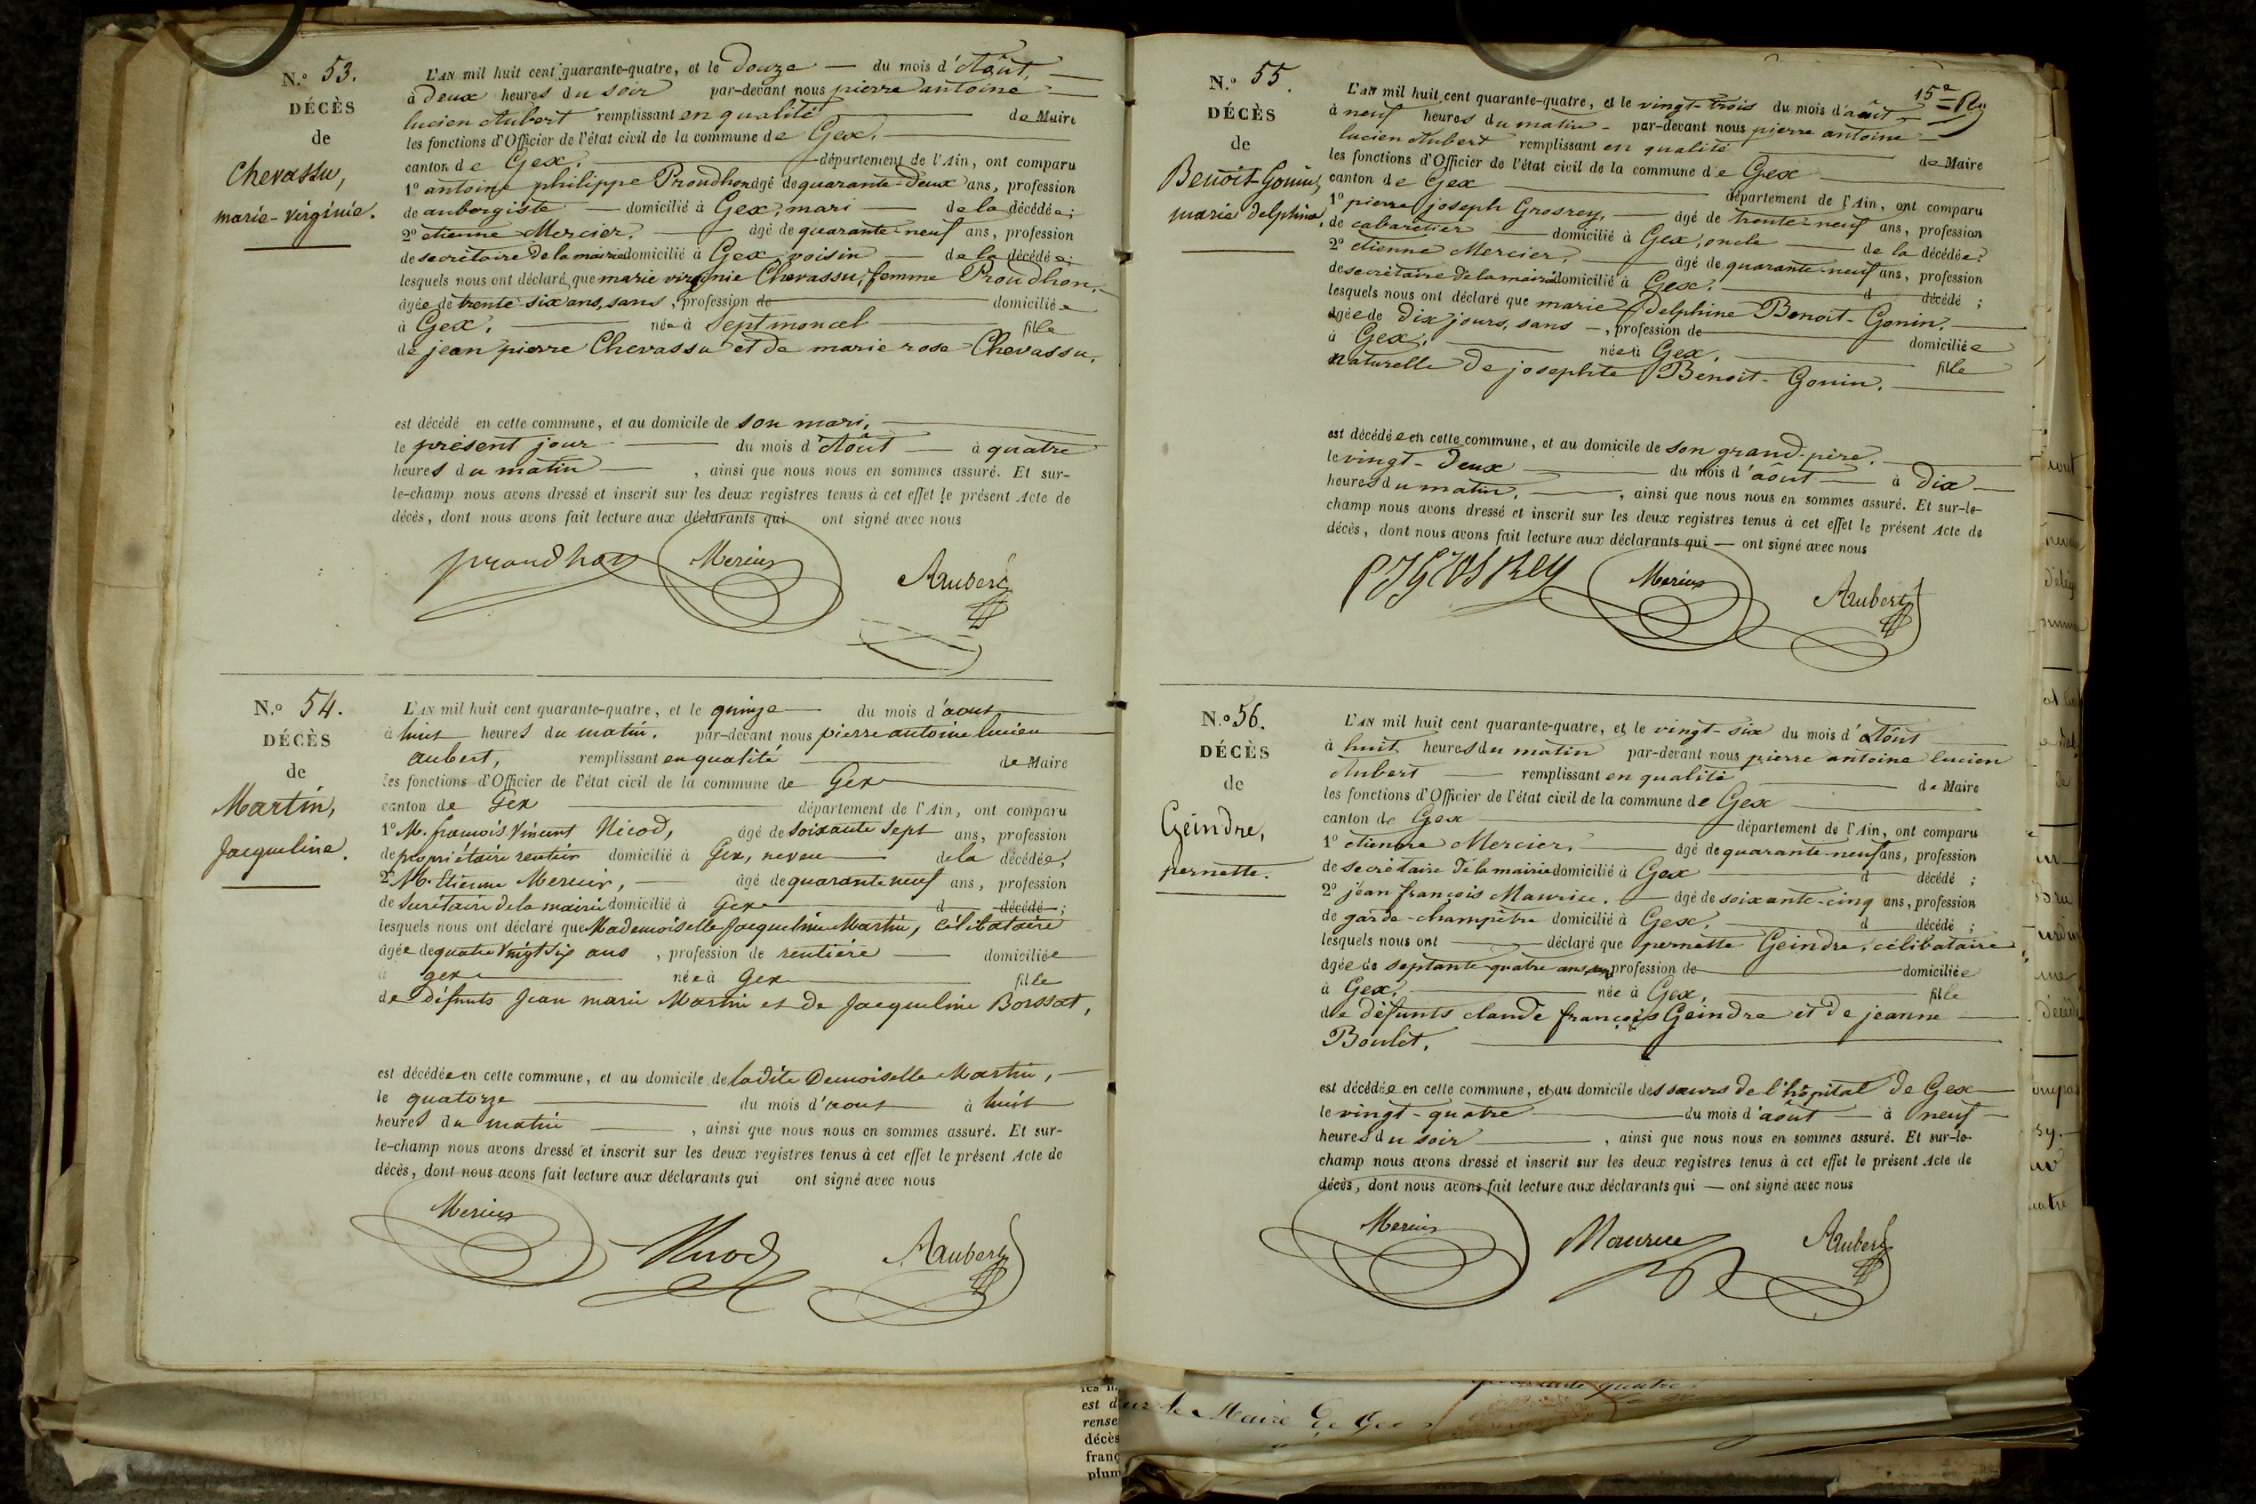 N.º 53.
DÉCÈS
de
Chevassu,
marie-virginie.
L'AN mil huit cent quarante-quatre, et le douze du mois d'Août,
à deux heures du soir par-devant nous pierre antoine
lucien Aubert remplissant en qualité de Maire
les fonctions d'Officier de l'état civil de la commune de Gex.
canton de Gex. département de l'Ain, ont comparu
1º antoine philippe Proudhon âgé de quarante-deux ans, profession
de aubergiste domicilié à Gex, mari de la décédée;
2º etienne Mercier. âgé de quarante-neuf ans, profession
de secrétaire de la mairie domicilié à Gex, voisin de la décédée;
lesquels nous ont déclaré que marie virginie Chevassu, femme Proudhon.
âgée de trente-six ans, sans, profession de domiciliée
à Gex, née à Septmoncel fille
de jean pierre Chevassu et de marie rose Chevassu.
est décédé en cette commune, et au domicile de son mari,
le présent jour du mois d'Août à quatre
heures du matin, ainsi que nous nous en sommes assuré. Et sur-
le-champ nous avons dressé et inscrit sur les deux registres tenus à cet effet le présent Acte de
décès, dont nous avons fait lecture aux déclarants qui ont signé avec nous
proudhon Mercier Aubert
N.º 54.
DÉCÈS
de
Martin,
Jacqueline.
L'AN mil huit cent quarante-quatre, et le quinze du mois d'aout
à huit heures du matin. par-devant nous pierre antoine lucien
aubert, remplissant en qualité de Maire
les fonctions d'Officier de l'état civil de la commune de Gex
canton de Gex département de l'Ain, ont comparu
1º M. françois Vincent Nicod, âgé de soixante sept ans, profession
de propriétaire rentier domicilié à Gex, neveu de la décédée;
2º M. Etienne Mercier, âgé de quarante neuf ans, profession
de Secrétaire de la mairie domicilié à Gex d décédé;
lesquels nous ont déclaré que Mademoiselle Jacqueline Martin, célibataire
âgée de quatre Vingt dix ans, profession de rentière domiciliée
à gex née à Gex fille
de défunts Jean marie Martin et de Jacqueline Borssat,
est décédée en cette commune, et au domicile de ladite Demoiselle Martin,
le quatorze du mois d'aout à huit
heures du matin, ainsi que nous nous en sommes assuré. Et sur-
le-champ nous avons dressé et inscrit sur les deux registres tenus à cet effet le présent Acte de
décès, dont nous avons fait lecture aux déclarants qui ont signé avec nous
Mercier Nicod Aubert
15e
N.º 55.
DÉCÈS
de
Benoit-Gonin,
marie delphine.
L'AN mil huit cent quarante-quatre, et le vingt-trois du mois d'août
à neuf heures du matin par-devant nous pierre antoine
lucien Aubert remplissant en qualité de Maire
les fonctions d'Officier de l'état civil de la commune de Gex
canton de Gex département de l'Ain, ont comparu
1º pierre joseph Grosrey, âgé de trente-neuf ans, profession
de cabaretier domicilié à Gex, oncle de la décédée;
2º etienne Mercier, âgé de quarante-neuf ans, profession
de secrétaire de la mairie domicilié à Gex. d décédé;
lesquels nous ont déclaré que marie Delphine Benoit-Gonin.
âgée de dix jours, sans, profession de domiciliée
à Gex, née à Gex, fille
naturelle de josephte Benoit-Gonin.
est décédée en cette commune, et au domicile de son grand-père.
le vingt-deux du mois d'août à dix
heures du matin, ainsi que nous nous en sommes assuré. Et sur-le-
champ nous avons dressé et inscrit sur les deux registres tenus à cet effet le présent Acte de
décès, dont nous avons fait lecture aux déclarants qui ont signé avec nous
PJ Grosrey Mercier Aubert
N.º 56.
DÉCÈS
de
Geindre,
pernette.
L'AN mil huit cent quarante-quatre, et le vingt-six du mois d'Août
à huit heures du matin par-devant nous pierre antoine lucien
Aubert remplissant en qualité de Maire
les fonctions d'Officier de l'état civil de la commune de Gex
canton de Gex département de l'Ain, ont comparu
1º etienne Mercier. âgé de quarante-neuf ans, profession
de secrétaire de la mairie domicilié à Gex d décédé;
2º jean françois Maurice. âgé de soixante-cinq ans, profession
de garde-champêtre domicilié à Gex, d décédé;
lesquels nous ont déclaré que pernette Geindre, célibataire,
âgée de septante-quatre ans, sans profession de domiciliée
à Gex, née à Gex, fille
de défunts claude françois Geindre et de jeanne
Boulet,
est décédée en cette commune, et au domicile des sœurs de l'hôpital de Gex
le vingt-quatre du mois d'août à neuf
heures du soir, ainsi que nous nous en sommes assuré. Et sur-le-
champ nous avons dressé et inscrit sur les deux registres tenus à cet effet le présent Acte de
décès, dont nous avons fait lecture aux déclarants qui ont signé avec nous
Mercier Maurice Aubert
quatre
le Maire de Gex
est d
rense
décès
franç
plum